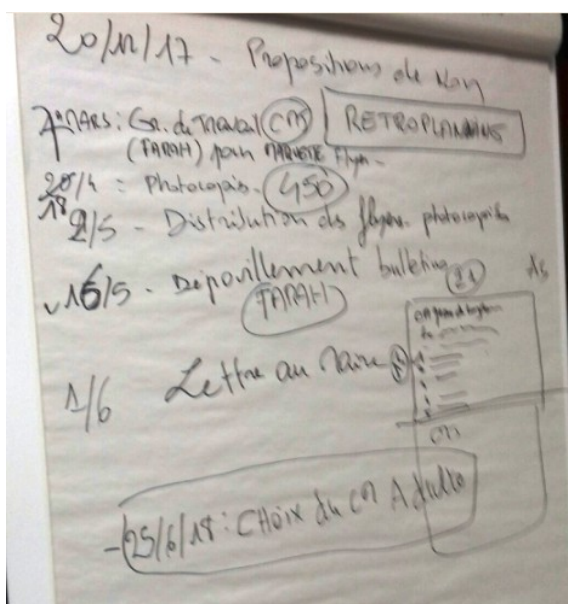 20/12/17 - Propositions de Nom
RETROPLANNING
7 MARS: Gr. de Travail CM
(FARAH) pour MAQUETTE Flyer -
20/4 = Photocopies - 450
18
2/5 - Distribution des flyers photocopiés
15/5 - Dépouillement bulletins
FARAH
1/6 Lettre au Maire
CM
- 25/6/18 : CHOIX du CM Adulte